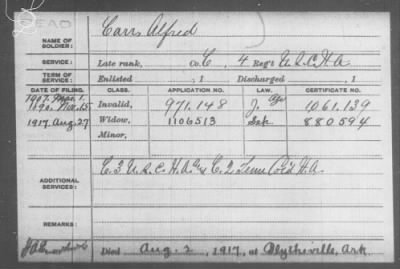 DEAD
NAME OF SOLDIER: Carr Alfred
SERVICE: Late rank, Co. C, 4 Reg't U.S.C.H.A.
TERM OF SERVICE: Enlisted , 1 Discharged , 1
DATE OF FILING. CLASS. APPLICATION NO. LAW. CERTIFICATE NO.
1907. Mar. 1. Age
Nov. 15 Invalid, 971.148 J. 1061.139
1917. Aug. 27 Widow, 1106513 880594
Minor,
ADDITIONAL SERVICES: C. 3 U.S.C.H.A. & C. 2 Tenn Col'd H.A.
REMARKS:
Died Aug. 2, 1917, at Blytheville, Ark.